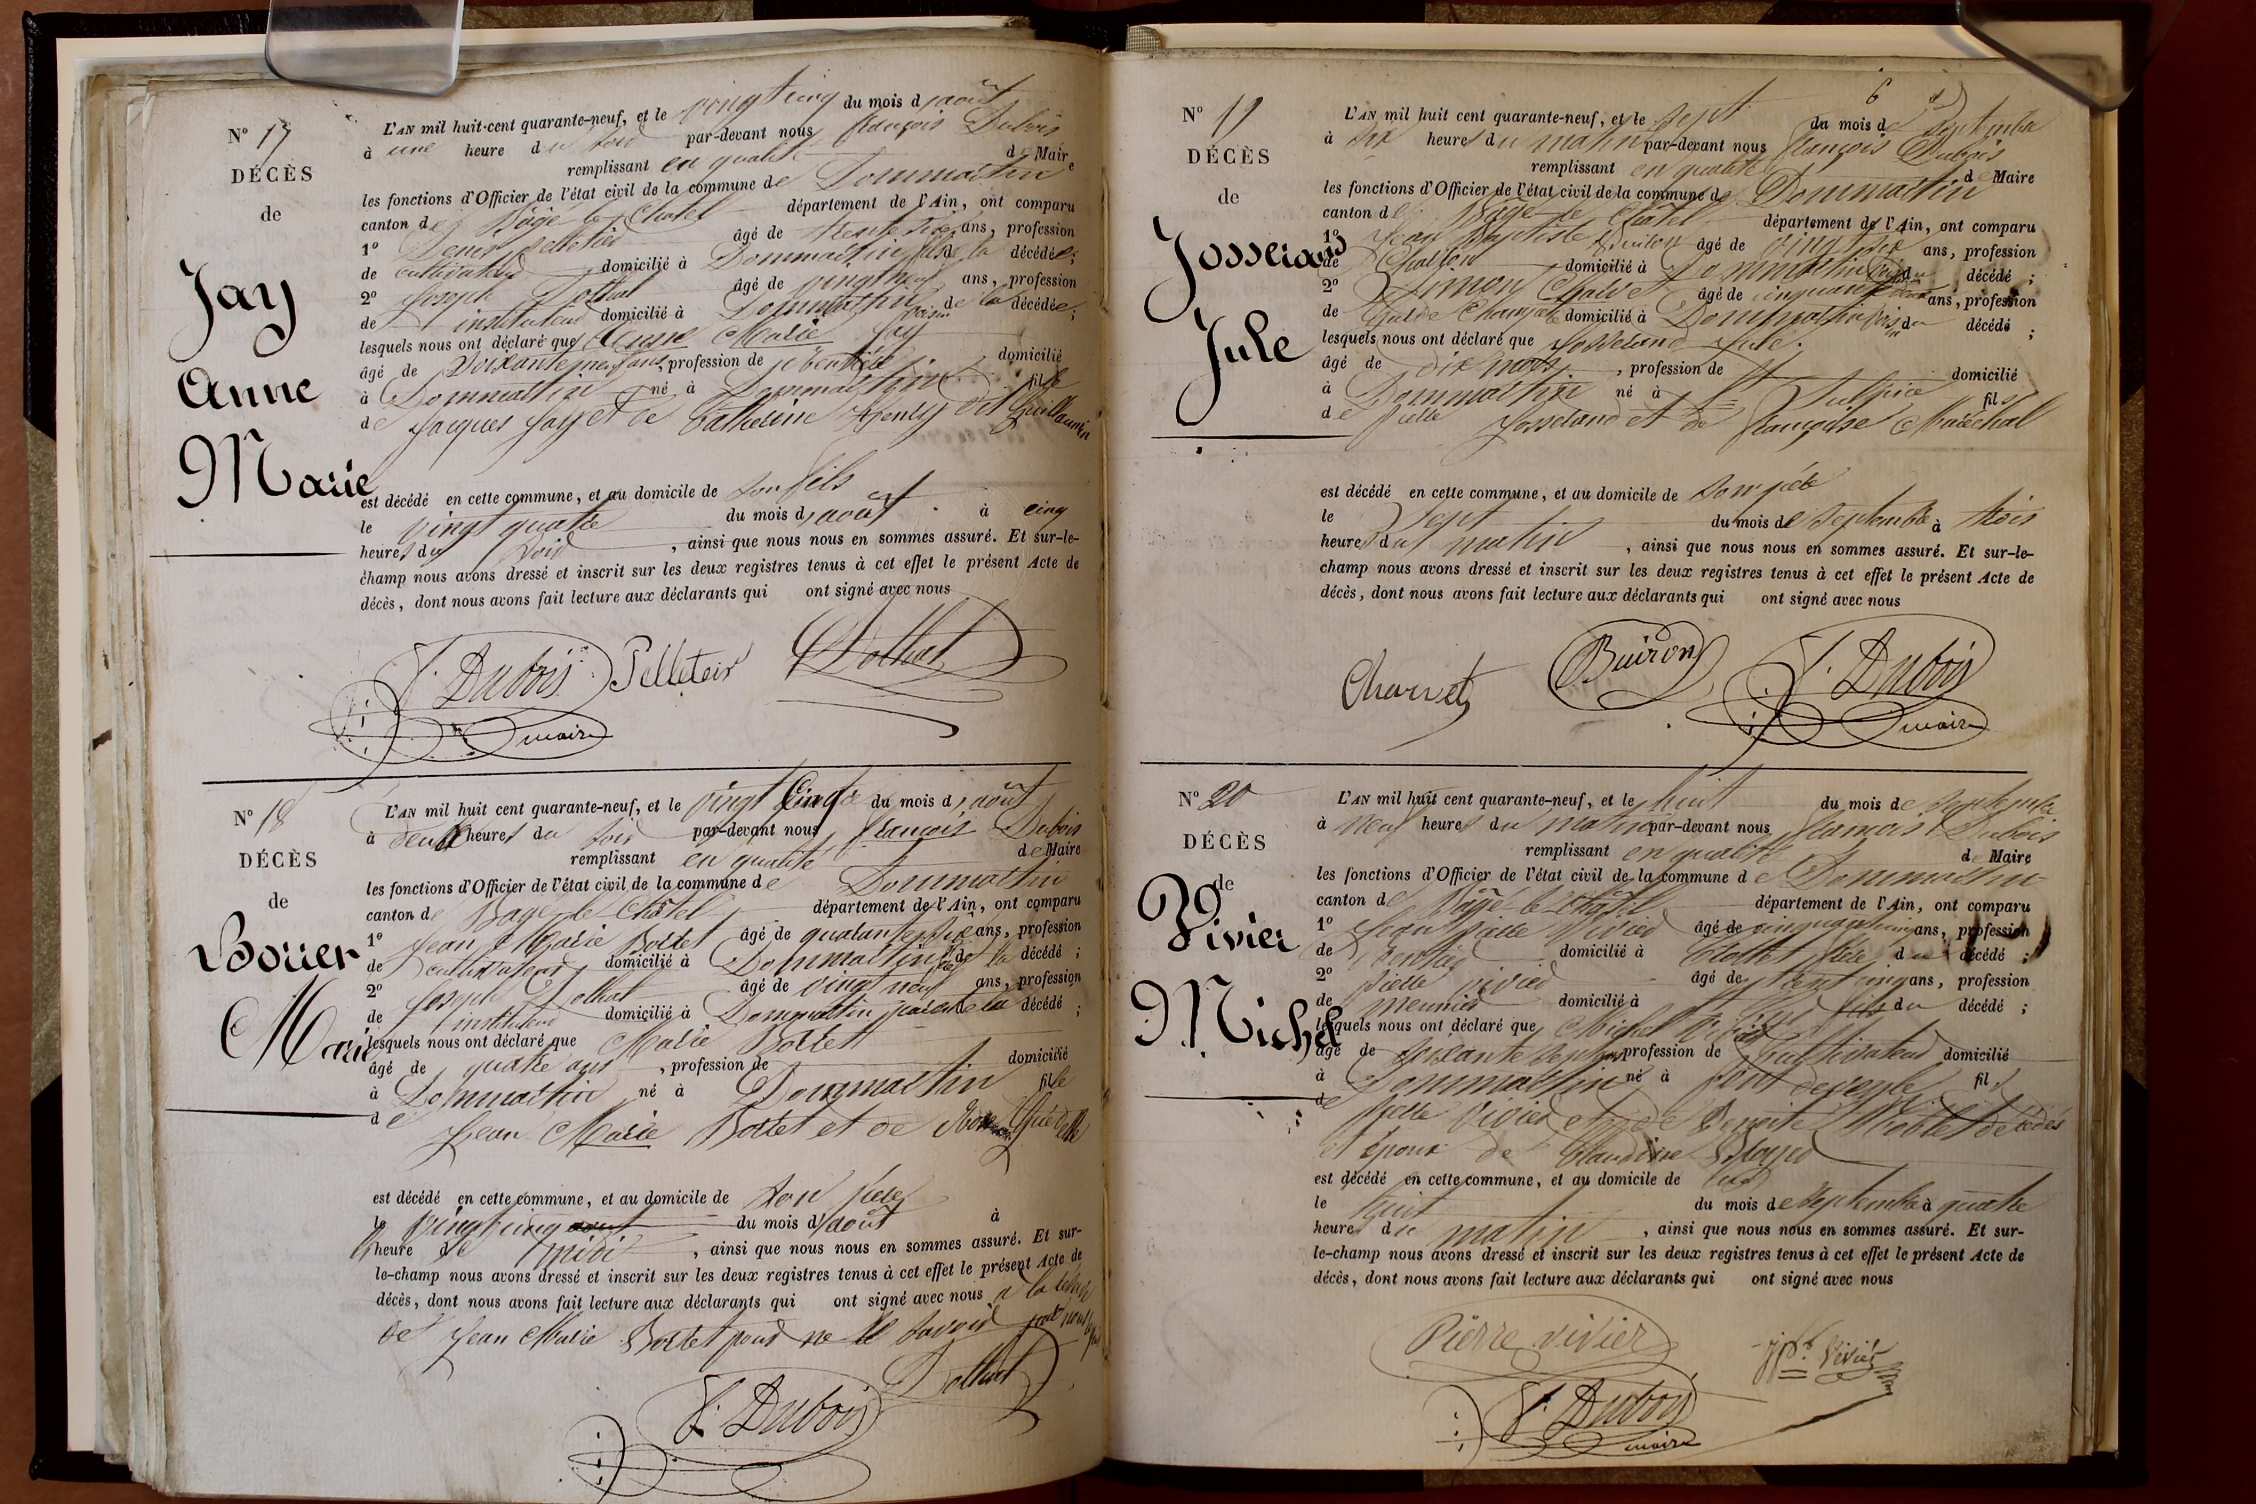 N° 17
DÉCÈS
de
Jay
Anne
Marie
L'AN mil huit-cent quarante-neuf, et le vingt cinq du mois d'août
à une heure du soir par-devant nous françois Dubois
remplissant en qualité de Maire
les fonctions d'Officier de l'état civil de la commune de Dommartin
canton de Bagé le Chatel département de l'Ain, ont comparu
1° Denis pelletier âgé de trente ans, profession
de cultivateur domicilié à Dommartin de la décédée;
2° Joseph Dothat âgé de vingt neuf ans, profession
de instituteur domicilié à Dommartin voisin de la décédée;
lesquels nous ont déclaré que Anne Marie Jay
âgé de Soixante neuf ans, profession de domicilié
à Dommartin né à Dommartin fille
de Jacques Jay et de Catherine dit Guillaumin
est décédé en cette commune, et au domicile de son fils
le vingt quatre du mois d'août à cinq
heures du soir, ainsi que nous nous en sommes assuré. Et sur-le-
champ nous avons dressé et inscrit sur les deux registres tenus à cet effet le présent Acte de
décès, dont nous avons fait lecture aux déclarants qui ont signé avec nous
f. Dubois Pelleteir Dothat
maire
N° 18
DÉCÈS
de
Borrer
Marie
L'AN mil huit cent quarante-neuf, et le vingt Cinq du mois d'août
à deux heures du soir par-devant nous françois Dubois
remplissant en qualité de Maire
les fonctions d'Officier de l'état civil de la commune de Dommartin
canton de Bagé le Châtel département de l'Ain, ont comparu
1° Jean Marie Borret âgé de quarante six ans, profession
de cultivateur domicilié à Dommartin de la décédé;
2° Joseph Dothat âgé de vingt neuf ans, profession
de instituteur domicilié à Dommartin de la décédé;
lesquels nous ont déclaré que Marie Borret
âgé de quatre ans, profession de domicilié
à Dommartin né à Dommartin fille
de Jean Marie Borret et de
est décédé en cette commune, et au domicile de son père
le vingt cinq du mois d'août à
heure de midi, ainsi que nous nous en sommes assuré. Et sur-
le-champ nous avons dressé et inscrit sur les deux registres tenus à cet effet le présent Acte de
décès, dont nous avons fait lecture aux déclarants qui ont signé avec nous
de Jean Marie Borret pour ne le savoir
Dothat
f. Dubois
6
N° 19
DÉCÈS
de
Josserand
Jule
L'AN mil huit cent quarante-neuf, et le sept du mois de septembre
à dix heures du matin par-devant nous françois Dubois
remplissant en qualité de Maire
les fonctions d'Officier de l'état civil de la commune de Dommartin
canton de Bagé le Châtel département de l'Ain, ont comparu
1° Jean Baptiste Buiron âgé de vingt six ans, profession
de Charron domicilié à Dommartin du décédé;
2° Simon Charvet âgé de cinquante ans, profession
de Garde Champêtre domicilié à Dommartin voisin du décédé;
lesquels nous ont déclaré que Josserand Jule.
âgé de dix mois, profession de domicilié
à Dommartin né à St Sulpice fils
de Josserand et de françoise Maréchal
est décédé en cette commune, et au domicile de son père
le sept du mois de septembre à trois
heures du matin, ainsi que nous nous en sommes assuré. Et sur-le-
champ nous avons dressé et inscrit sur les deux registres tenus à cet effet le présent Acte de
décès, dont nous avons fait lecture aux déclarants qui ont signé avec nous
Charvet Buiron f. Dubois
maire
N° 20
DÉCÈS
de
Vivier
Michel
L'AN mil huit cent quarante-neuf, et le huit du mois de septembre
à neuf heures du matin par-devant nous françois Dubois
remplissant en qualité de Maire
les fonctions d'Officier de l'état civil de la commune de Dommartin
canton de Bagé le Châtel département de l'Ain, ont comparu
1° Vivier âgé de cinquante ans, profession
de domicilié à du décédé;
2° pierre vivier âgé de trente cinq ans, profession
de meunier domicilié à fils du décédé;
lesquels nous ont déclaré que Michel Vivier
âgé de soixante sept ans profession de Cultivateur domicilié
à Dommartin né à pont de veyle fils
de pierre vivier et de Benoite décédés
et époux de Claudine
est décédé en cette commune, et au domicile de
le huit du mois de septembre à quatre
heures du matin, ainsi que nous nous en sommes assuré. Et sur-
le-champ nous avons dressé et inscrit sur les deux registres tenus à cet effet le présent Acte de
décès, dont nous avons fait lecture aux déclarants qui ont signé avec nous
Pierre vivier Vivier
f. Dubois
maire